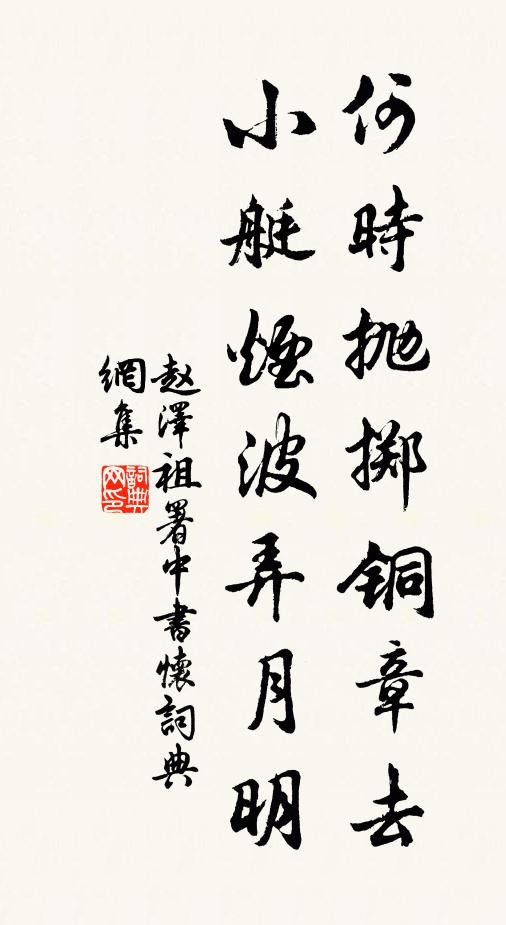 何時抛掷铜章去
小艇煙波弄月明
赵澤祖署中書懷詞典
網集
詞典
网印